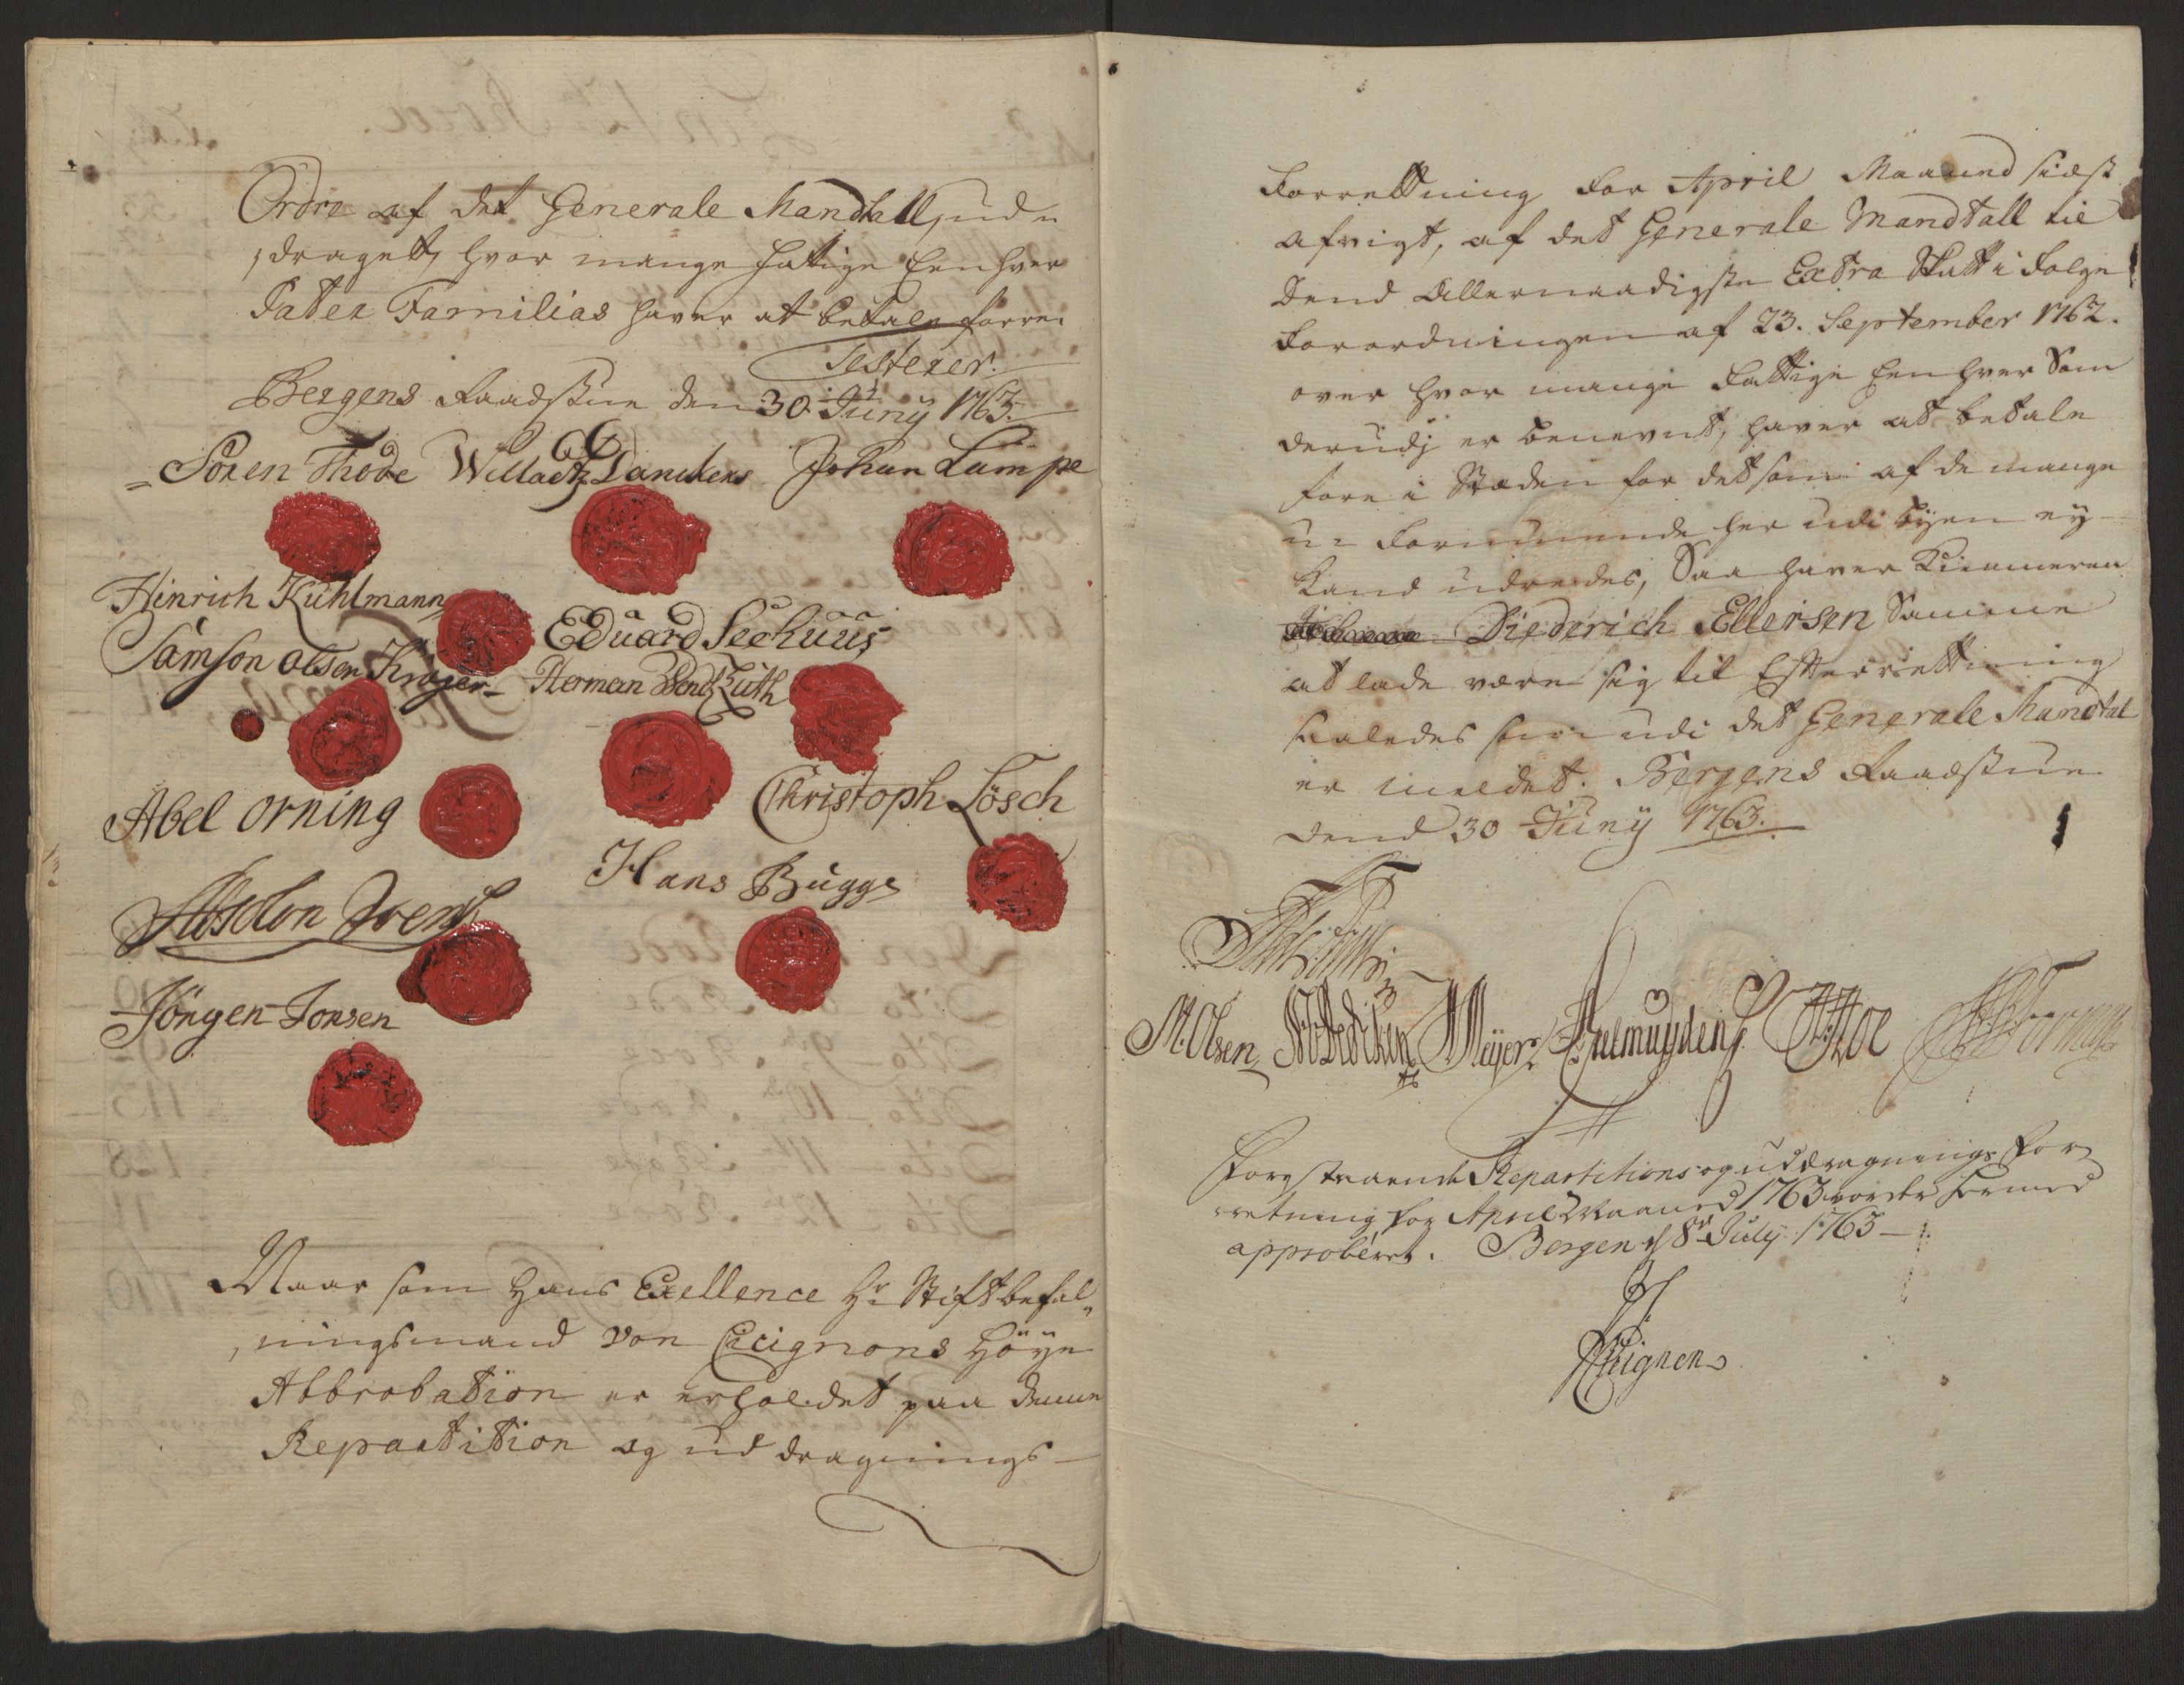 Ordre af det Generale Mandtall, ud¬
draget, hvor mange fattige Eenhver
Pater Familias haver at betale forre.
Testerer.
Bergens Raadstue den 30. Juny 1763.
Sören Thode Willadtz Danckers Johan Lampe
Hinrich Kühlmann
Eduard Seehuus
Samson Olsen Krøyer Herman Zuth
Abel Orning
Christoph Lösch
Hans Bugge
Absolon
Jörgen Jonsen
Naar som Hans Exellence Hr Stiftbefal¬
ningsmand von Cicignons Höye
Abbrobation er erholdet paa denne
Repartition og uddragnings
Forrettning for April Maaned sidst
afvigt, af det Generale Mandtall til
Dend Allernaadigste Extra Skatt i følge
Forordningen af 23. September 1762.
over hvor mange Fattige Eenhver Som
derudj er benevnt, haver at betale
fore i Steden for det som af de mange
u¬formuende her udi Byen ey
kand udredes, Saa haver Kiemneren
Diederich Ellersen Samme
at lade være sig til Efterrettning
saaledes som udi det Generale Mandtal
er meldet. Bergens Raadstue
dend 30 Juny 1763.
M. Olsen Meyer
Forestaaende Repartitions og uddragnings For
retning for April Maaned 1763 vorder hermed
approberet. Bergen d 8de July 1763
Cicignon